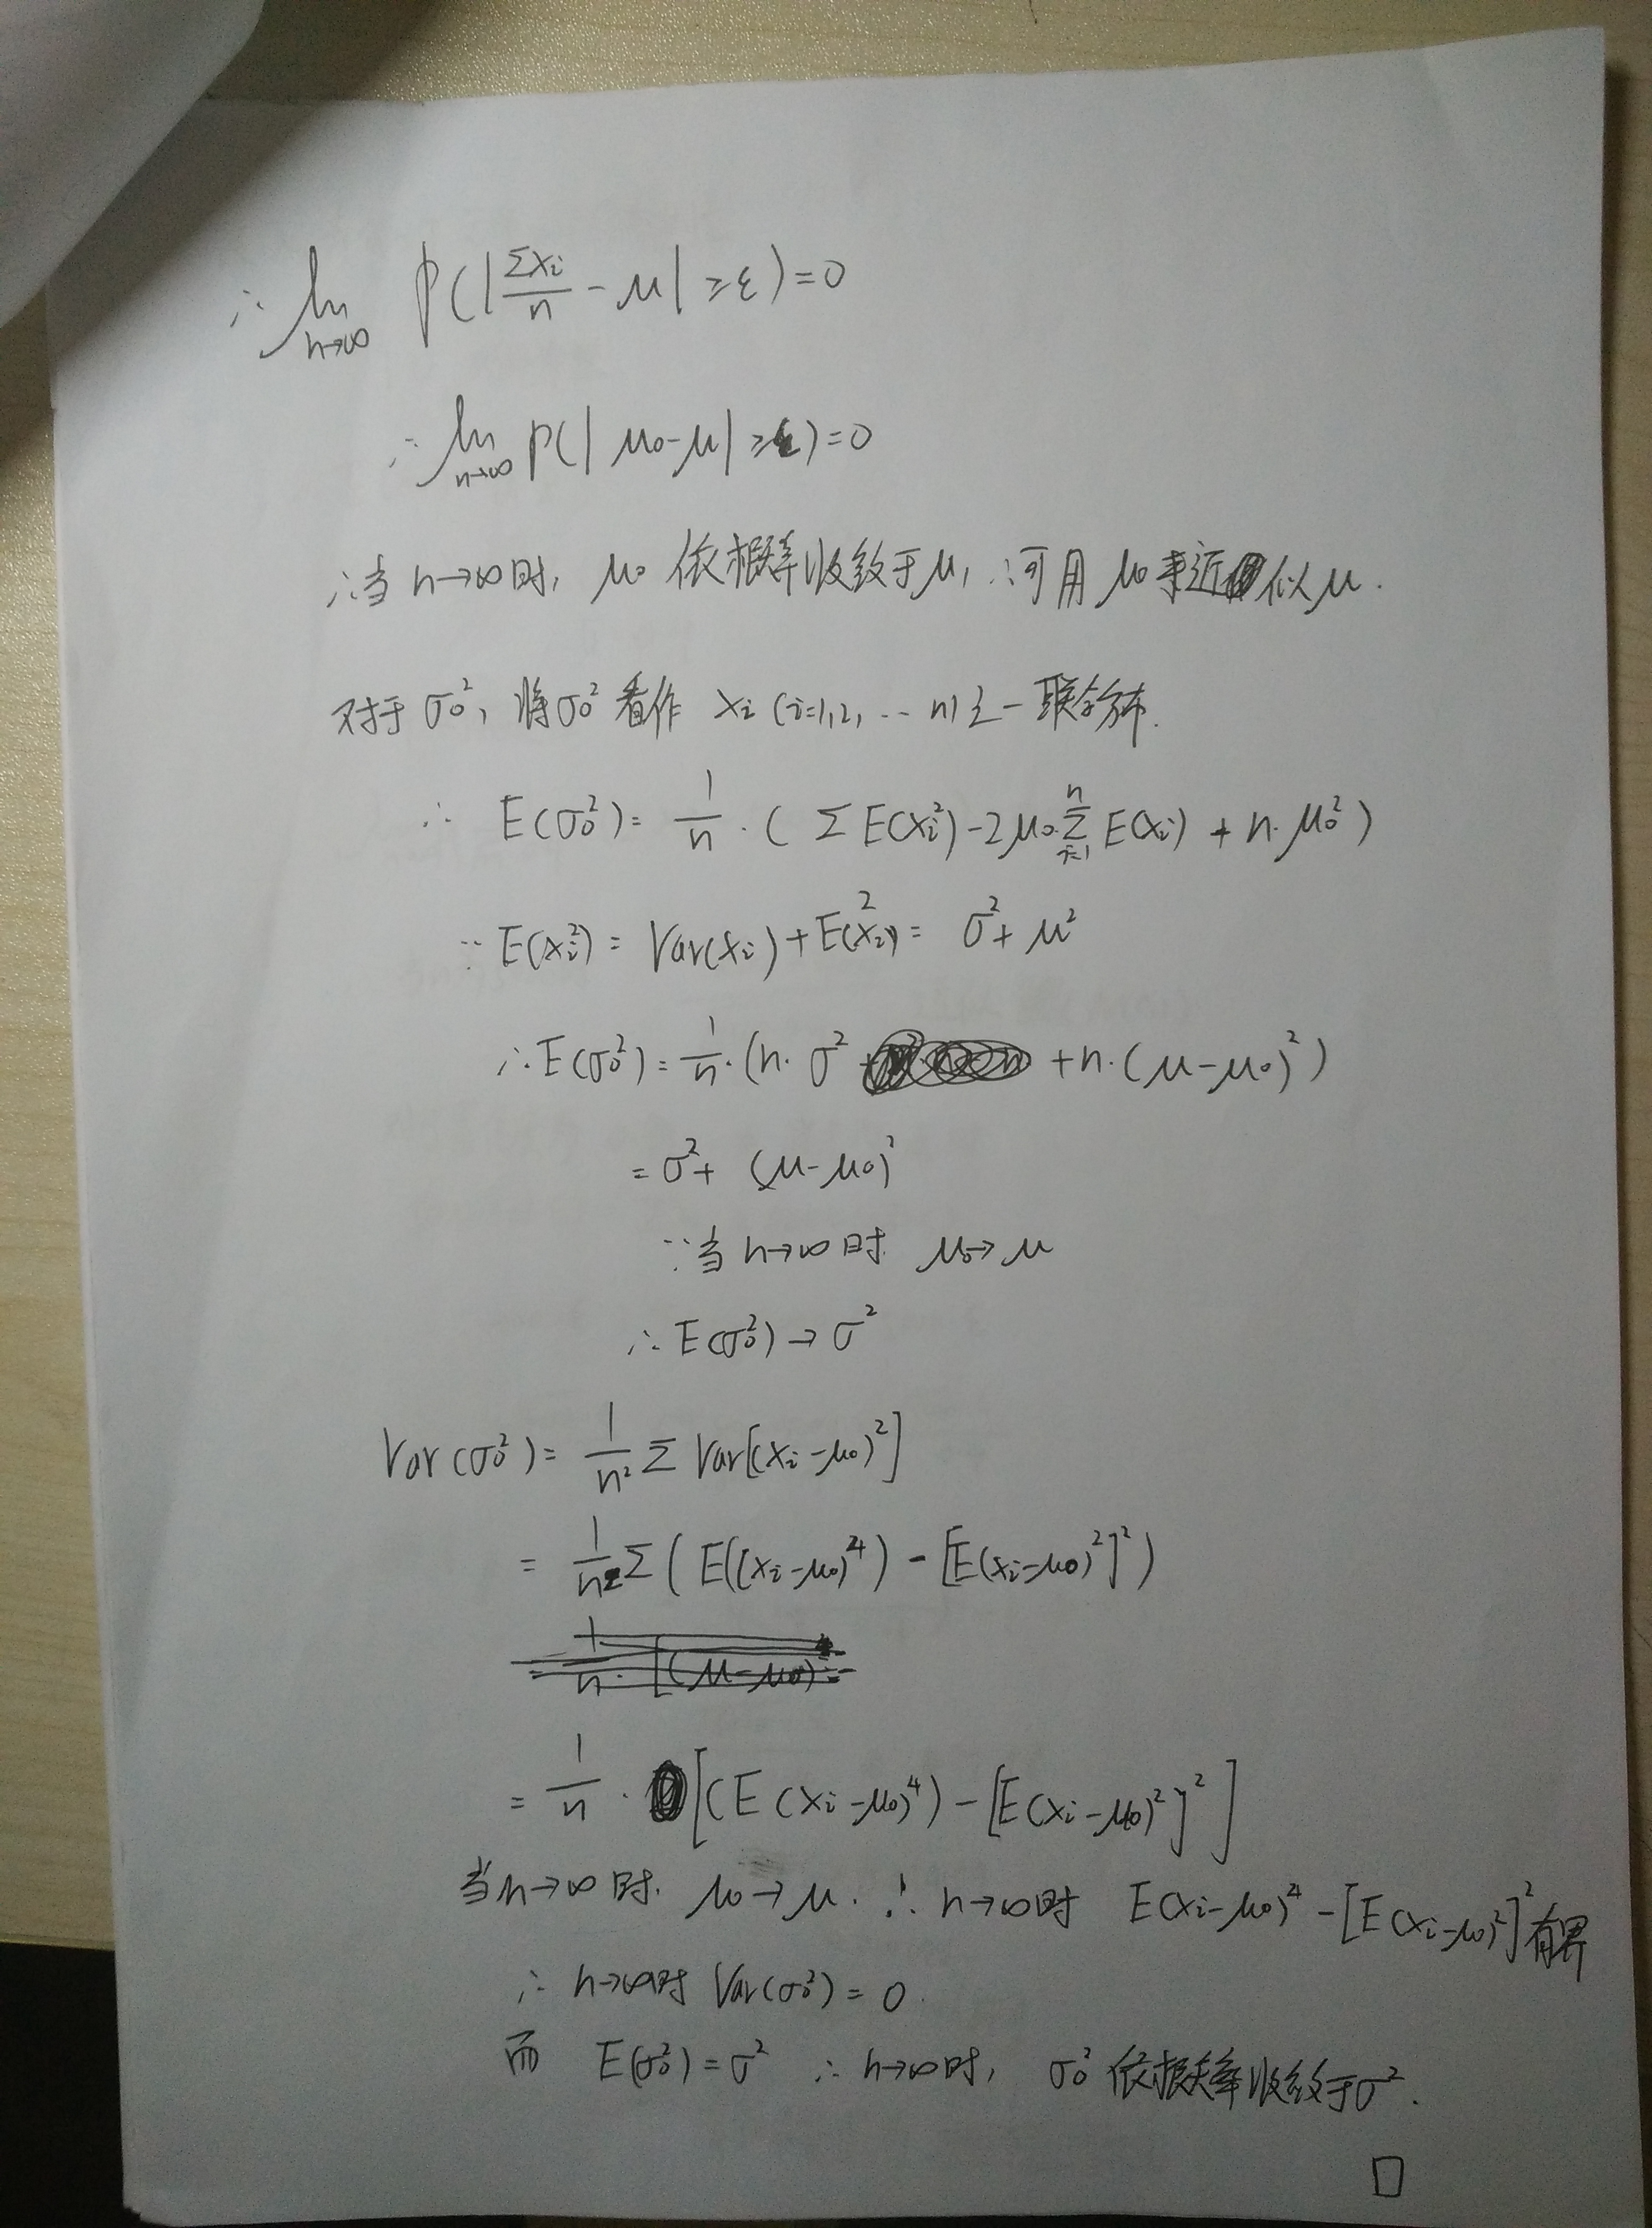 ∴ lim n→∞ P(|Σxi/n - μ| ≥ε)=0
∴ lim n→∞ P(| μ0-μ| ≥ε)=0
∴当 n→∞时, μ0 依概率收敛于μ, ∴可用 μ0 来近似μ.
对于 σ0², 将σ0² 看作 xi (i=1,2, … n) 之一联合分布.
∴ E(σ0²)= 1/n · ( Σ E(xi²)-2μ0·Σ(i=1,n) E(xi) + n·μ0²)
∵ E(xi²) = Var(xi)+E²(xi)= σ²+ μ²
∴E(σ0²)=1/n·(n·σ² +n·(μ-μ0)²)
= σ²+ (μ-μ0)²
∵当 n→∞时 μ0→μ
∴E(σ0²)→σ²
Var(σ0²)= 1/n² Σ Var[(xi-μ0)²]
= 1/n² Σ( E((xi-μ0)⁴) - [E(xi-μ0)²]²)
= 1/n · [(E(xi-μ0)⁴) - [E(xi-μ0)²]²]
当n→∞时. μ0→μ. ∴ n→∞时 E(xi-μ0)⁴ - [E(xi-μ0)²]²有界
∴ n→∞时 Var(σ0²) = 0.
而 E(σ0²) = σ² ∴ n→∞时, σ0² 依概率收敛于σ².
□